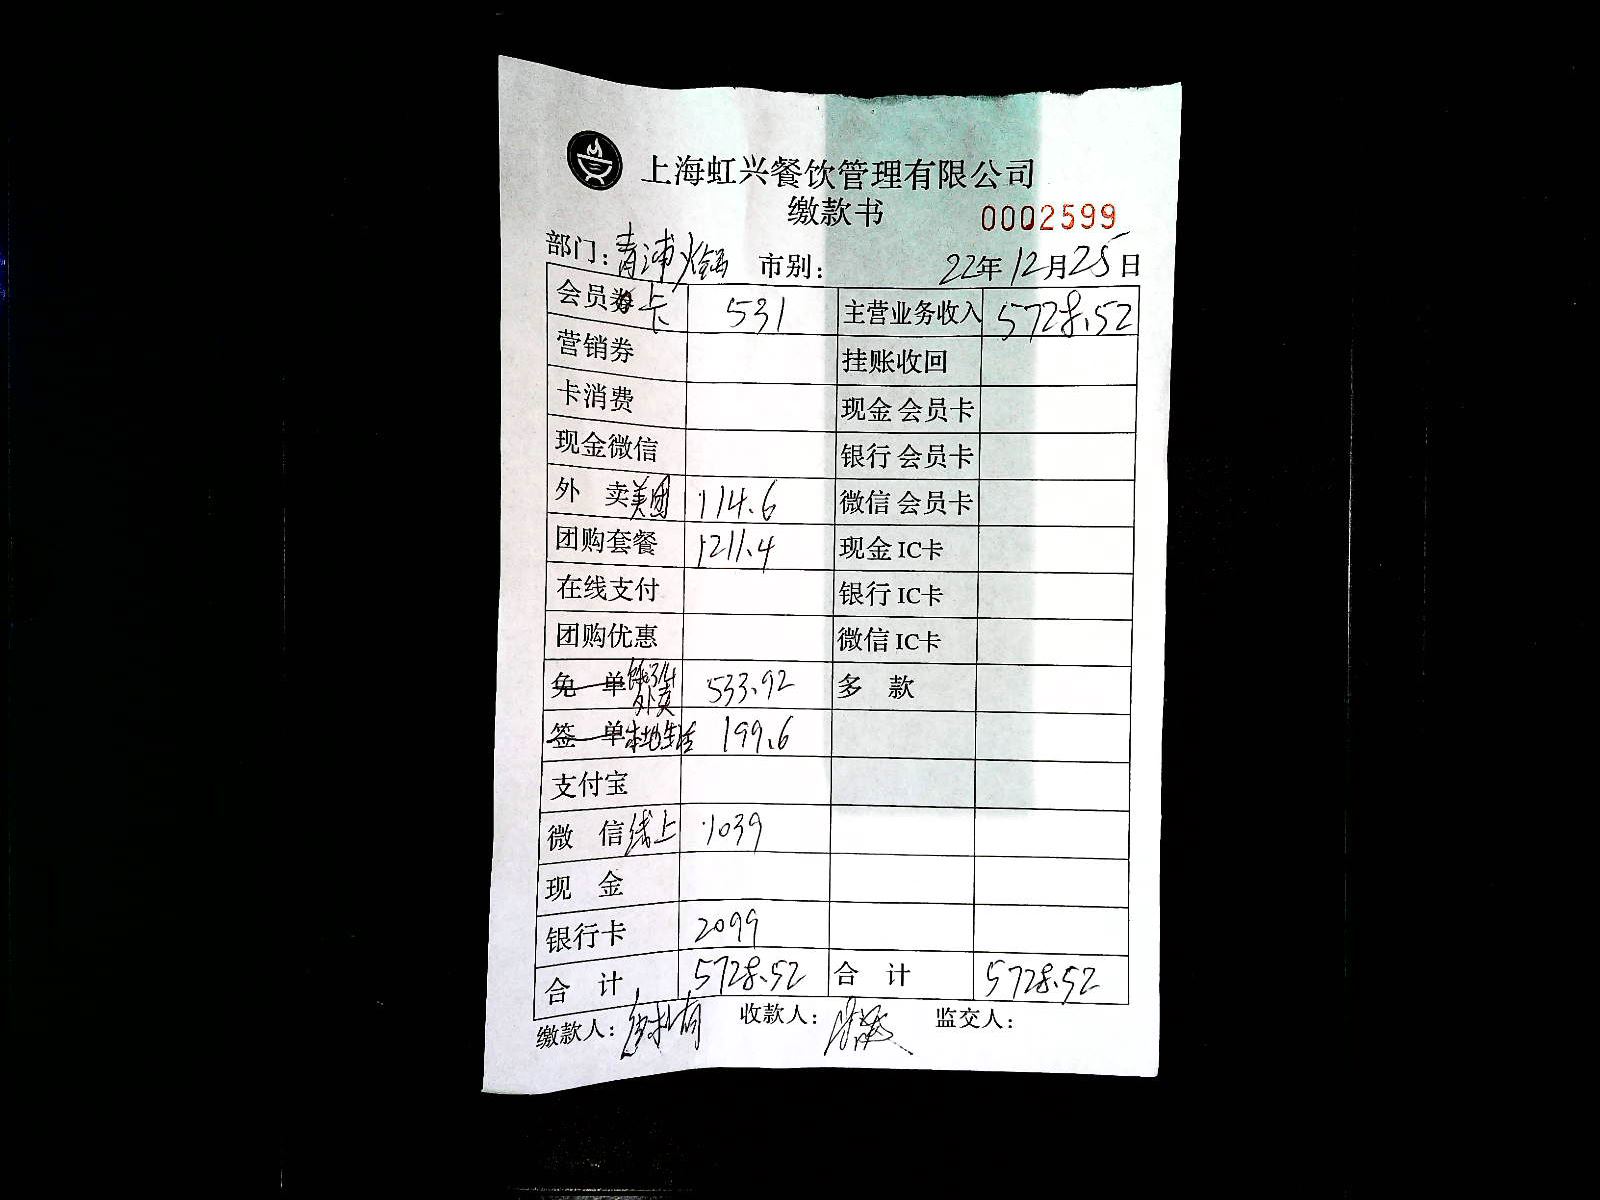 上海虹兴餐饮管理有限公司
缴款书 0002599
部门：青浦火锅 市别： 22年12月25日
会员卡 531 主营业务收入 5728.52
营销券 挂账收回
卡消费 现金 会员卡
现金微信 银行 会员卡
外 卖美团 114.6 微信 会员卡
团购套餐 1211.4 现金 IC卡
在线支付 银行 IC卡
团购优惠 微信 IC卡
免 单 外卖 533.92 多 款
签 单 本地生活 199.6
支付宝
微 信线上 1039
现 金
银行卡 2099
合 计 5728.52 合 计 5728.52
缴款人： 收款人： 监交人：